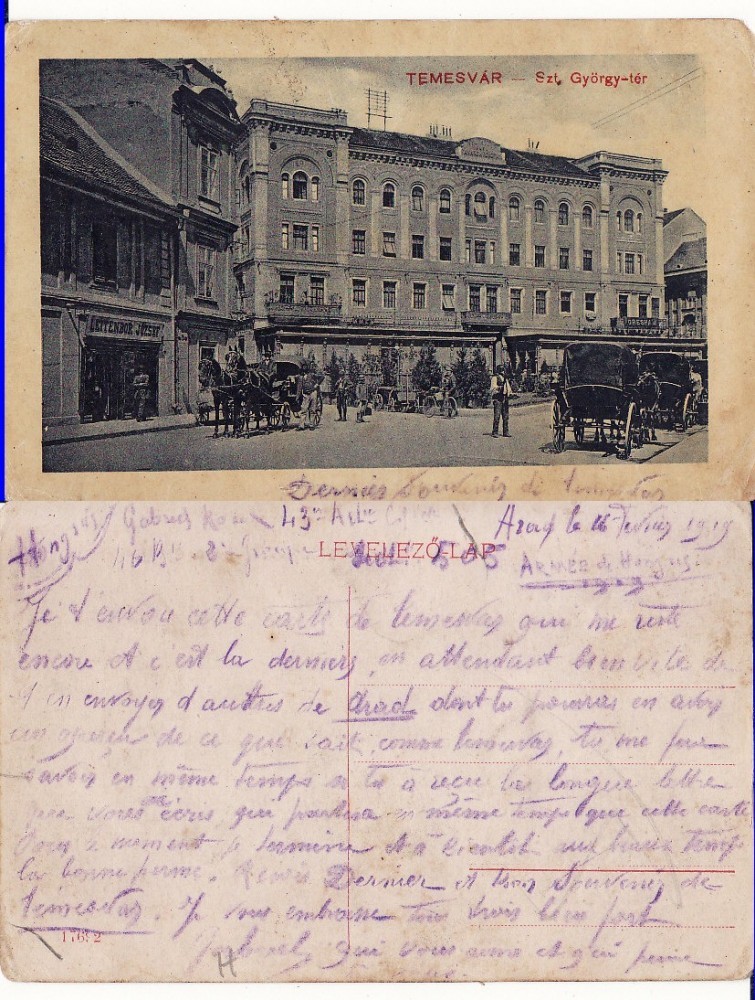 TEMESVÁR — Szt. György-tér
LEITENBOR JÓZSEF
Dernier Souvenir de Temesvar
Hongrie Gabriel 43me Arad le 16 Février 1919
LEVELEZŐ-LAP
Sect. 505 ARMÉE de Hongrie
1919
Je t'envoi cette carte de temesvar qui me reste
encore et c'est la derniers, en attendant bien vite de
t'en envoyer d'autres de Arad dont tu pourras en avoir
un aperçu de ce que c'ait, comme temesvar, tu me fera
savoir en même temps si tu à reçu la longue lettre
que vous écris, qui partira en même temps que cette carte
Pour moment je termine et à bientôt aux beaux temps
la bonne perme. Dernier et bon Souvenir de
temesvar. Je vous embrasse tous trois bien fort
Gabriel, qui vous aime et qui pense
17692
H